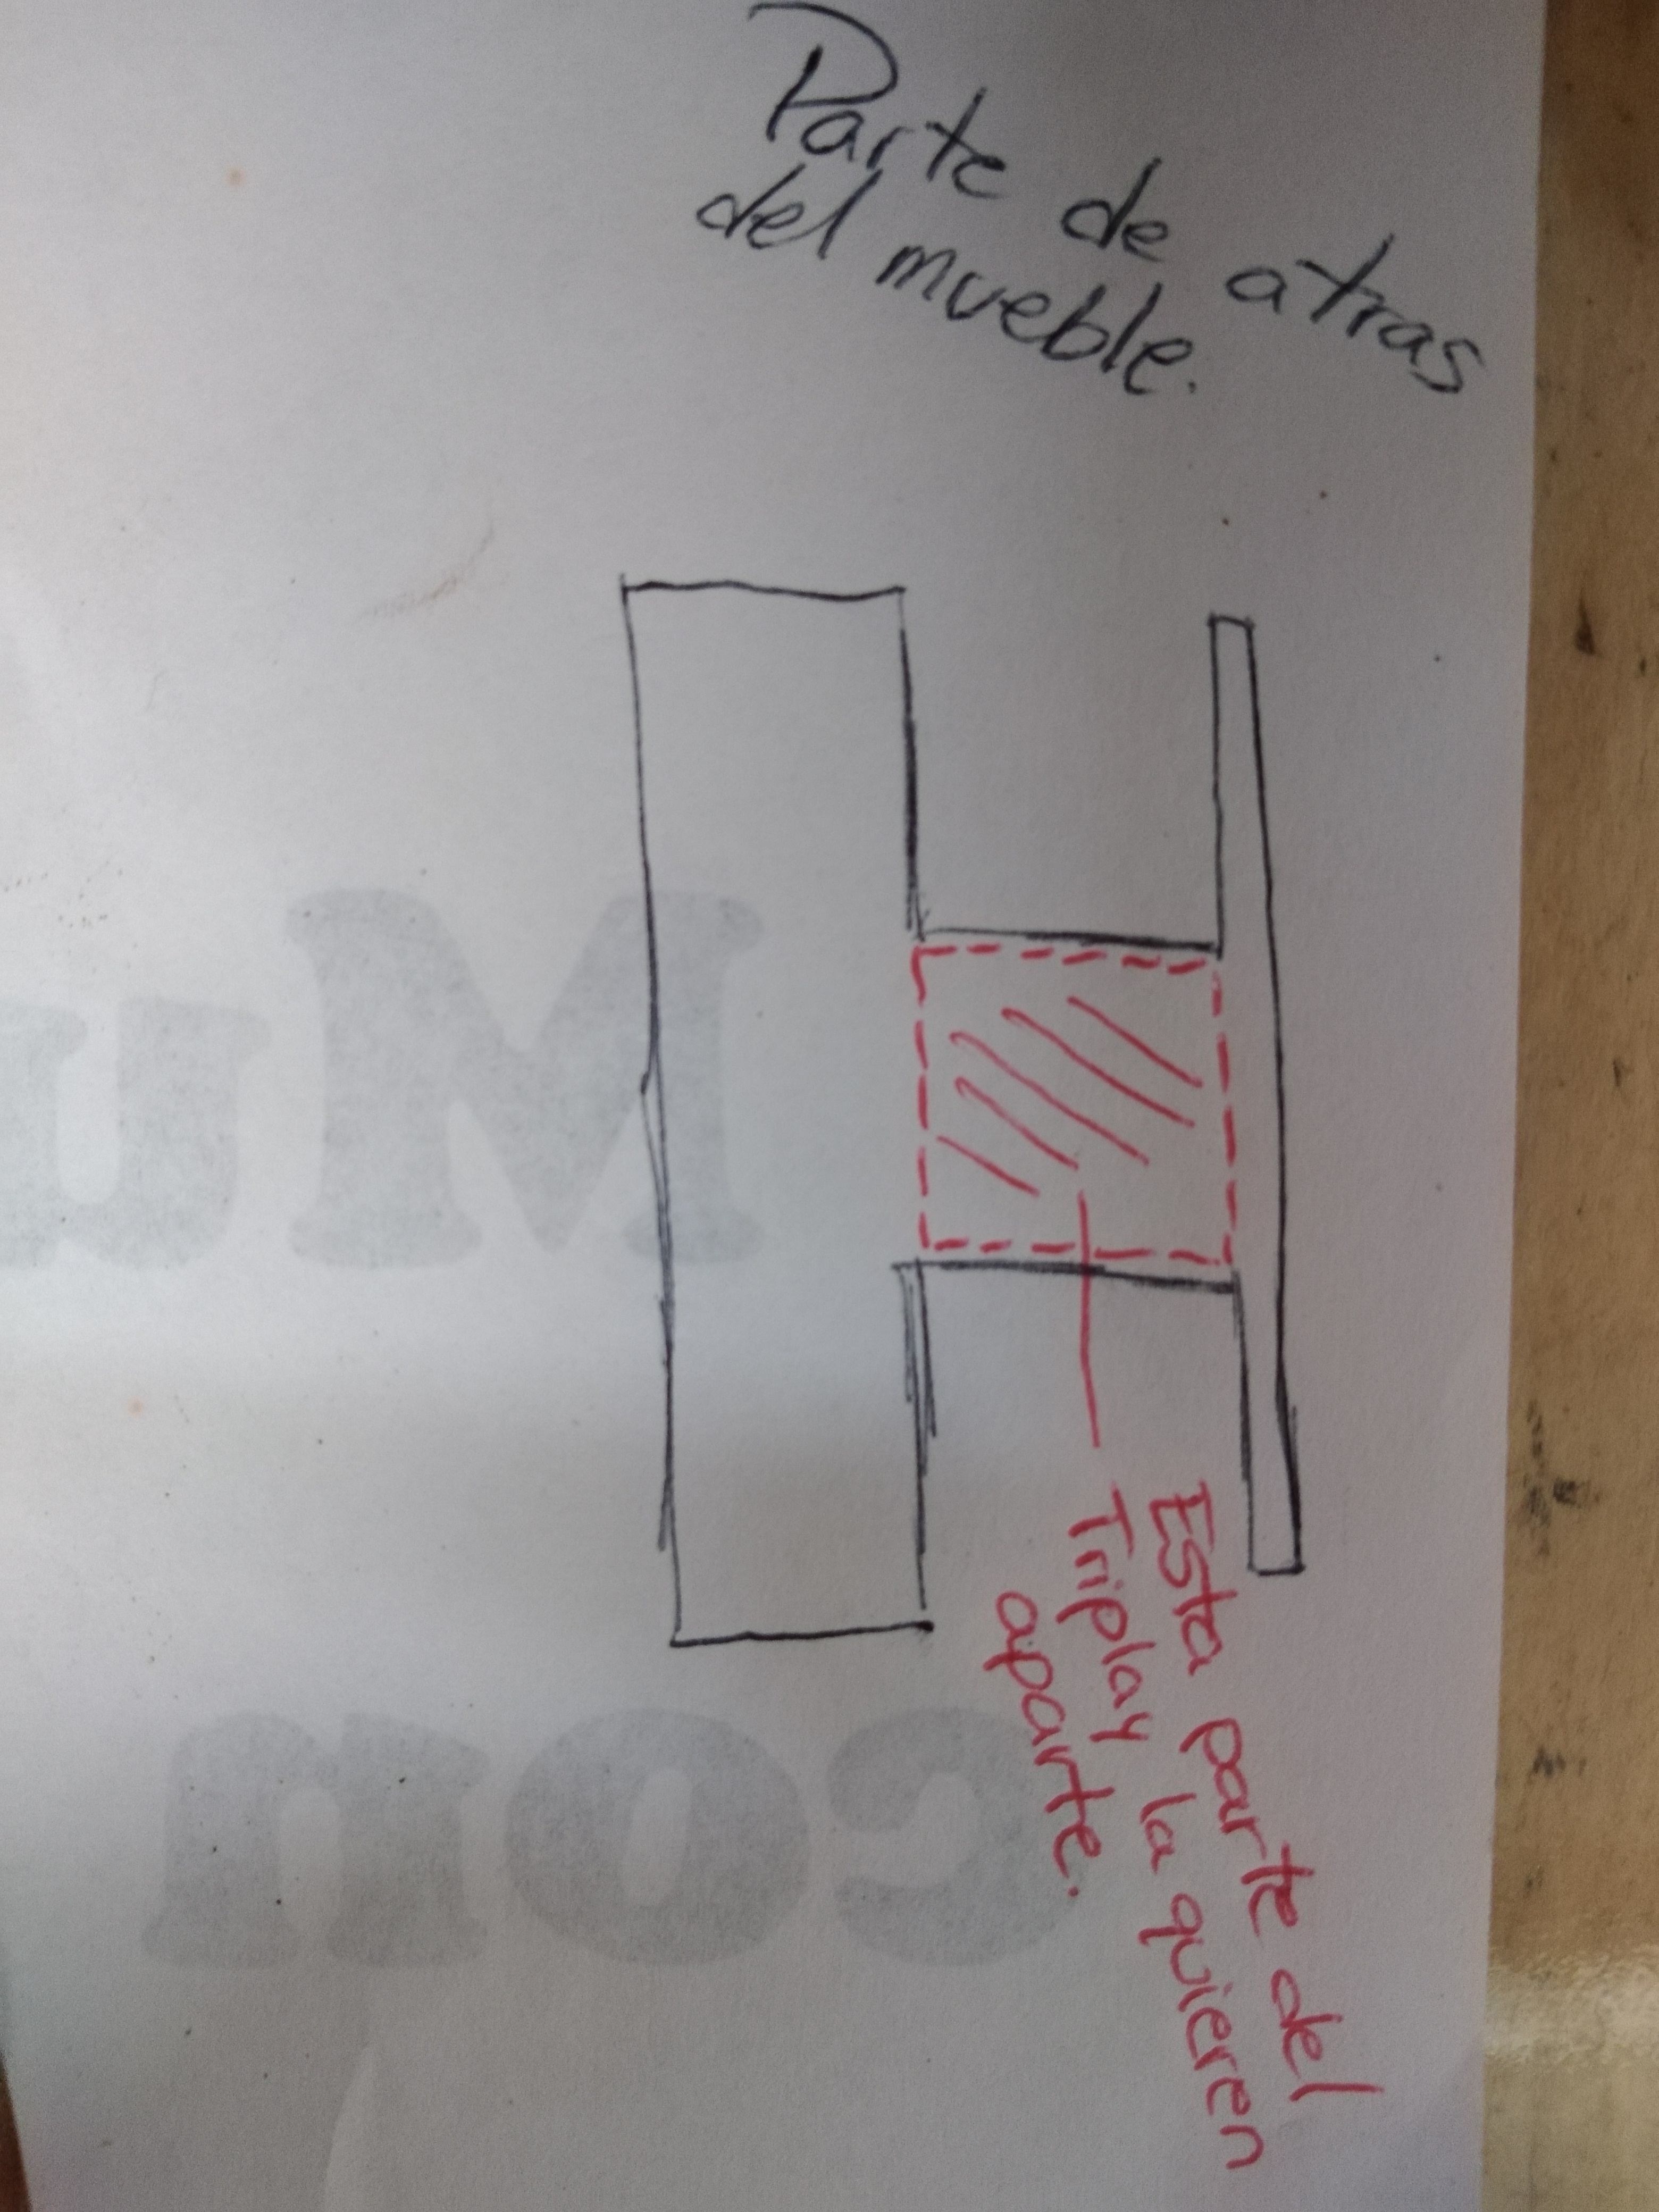 Parte de atras
del mueble.
Esta parte del
Triplay la quieren
aparte.
Mu
con